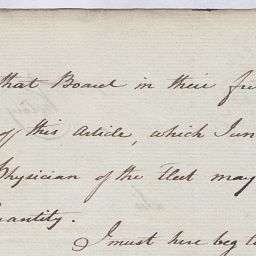 that Board in their fu
of this article, which I un
Physician of the Fleet may
uantity.
I must here beg t